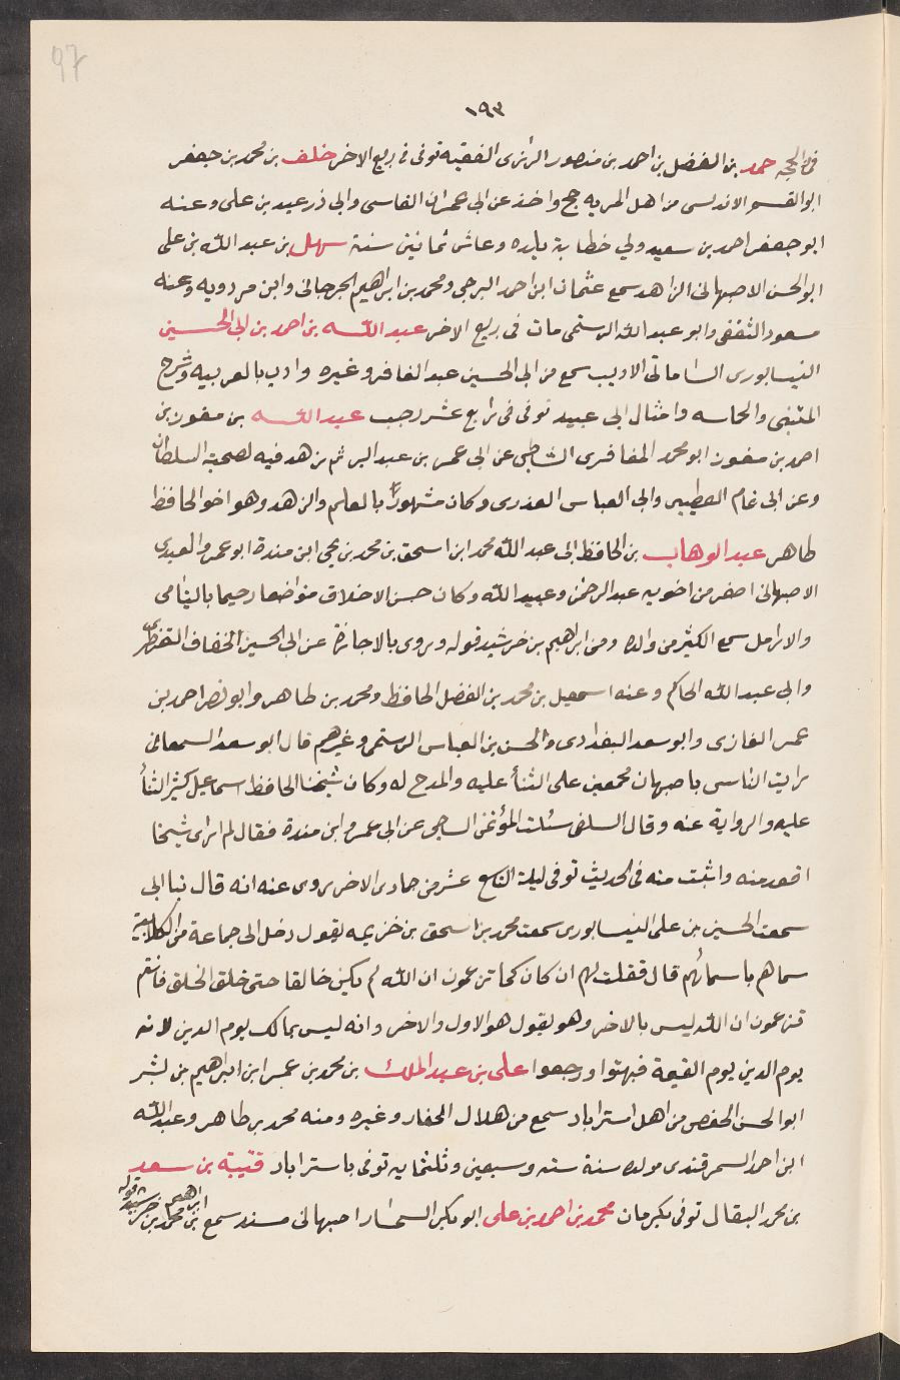 97
١٩٣
فى الحجه حمد بن الفضل بن احمد بن منصور الرازى الفقيه توفى فى ربيع الاخر خلف بن محمد بن جعفر
ابو القسم الاندلسى من اهل المريه حج واخذ عن ابى عمران الفاسى وابى ذر عبد بن على وعنه
ابو جعفر احمد بن سعيد ولي خطابة بلده وعاش ثمانين سنة سهل بن عبد الله بن على
ابو الحسن الاصبهانى الزاهد سمع عثمان ابن احمد البرجى ومحمد بن ابراهيم الجرجانى وابن مردويه وعنه
مسعود الثقفى وابو عبد الله الرستمى مات فى ربيع الاخر عبد الله بن احمد بن ابى الحسين
النيسابورى الشاماتى الاديب سمع من ابى الحسين عبد الغافر وغيره وادب بالعربيه وشرح
المتنبى والحماسه وامثال ابى عبيد توفى فى رابع عشر رجب عبد الله بن مفوز بن
احمد بن مفوز ابو محمد المغافرى الشاطبى عن ابى عمر بن عبد البر ثم زهد فيه لصحبة السلطان
وعن ابى تمام القطينى وابى العباس العذرى وكان مشهورًا بالعلم والزهد وهو اخو الحافظ
طاهر عبد الوهاب بن الحافظ ابى عبد الله محمد ابن اسحق بن محمد بن يحيى ابن مندة ابو عمرو العبدى
الاصبهانى اصغر من اخويه عبد الرحمن وعبيد الله وكان حسن الاخلاق متواضعا رحيما باليتامى
والارامل سمع الكثير من والده ومن ابراهيم بن خرشيد قوله وروى بالاجازة عن ابى الحسين الخفاف القنطرى
وابى عبد الله الحاكم وعنه اسمعيل بن محمد بن الفضل الحافظ ومحمد بن طاهر وابو نصر احمد بن
عمر الغازى وابو سعد البغدادى والحسن بن العباس الرستمى وغيرهم قال ابو سعد السمعانى
رايت الناس باصبهان مجمعين على الثنأ عليه والمدح له وكان شيخنا الحافظ اسماعيل كثير الثنأ
عليه والرواية عنه وقال السلفى سئلت المؤتمن الساجى عن ابى عمرو ابن مندة فقال لم ار شيخا
اقعد منه واثبت منه فى الحديث توفى ليلة التاسع عشر من جمادى الاخر روى عنه انه قال نبا ابى
سمعت الحسين بن على النيسابورى سمعت محمد بن اسحق بن خزيمه يقول دخل الى جماعة من الكلابية
سماهم باسمائهم قال فقلت لهم ان كان كما تزعمون ان الله لم يكن خالقا حتى خلق الخلق فانتم
تزعمون ان الله ليس بالاخر وهو يقول هو الاول والاخر وانه ليس بمالك يوم الدين لانه
يوم الدين يوم القيمة فبهتوا ورجعوا على بن عبد الملك بن محمد بن عمر ابن ابراهيم بن بشر
ابو الحسن الحفصى من اهل استراباد سمع من هلال الحفار وغيره ومنه محمد بن طاهر وعبد الله
ابن احمد السمرقندى مولده سنة سته وسبعين وثلثمايه توفى باستراباد قتيبة بن سعد
بن محمد البقال توفى بكرمان محمد بن احمد بن على ابو بكر السمسار اصبهانى مسند سمع ابراهيم بن محمد بن خرشيد قوله